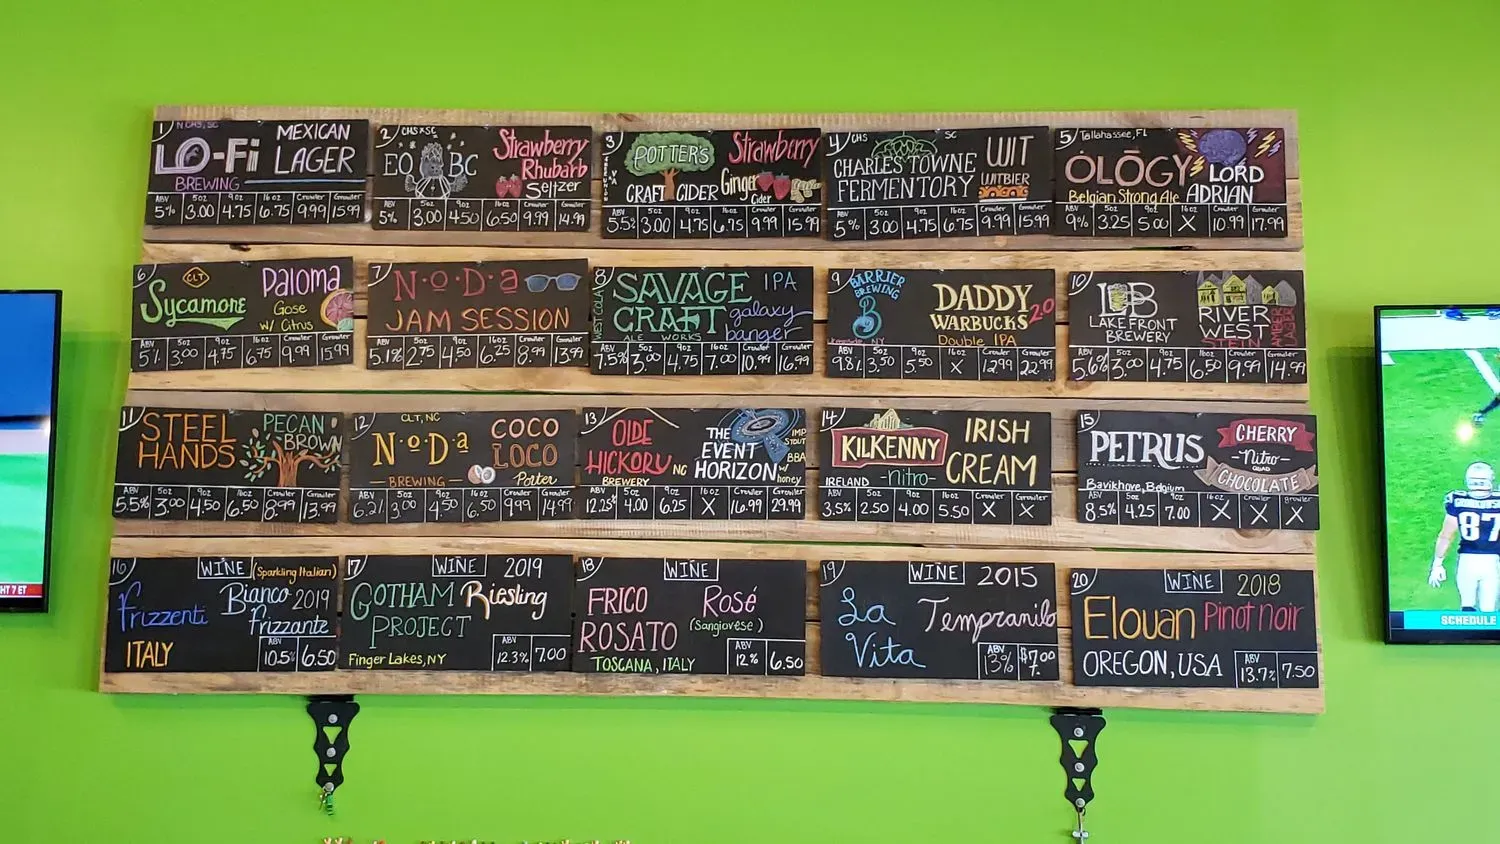 1 N CHS, SC
LO-Fi
BREWING
MEXICAN
LAGER
ABV 5oz 9oz 16oz Crowler Growler
5% 3.00 4.75 6.75 9.99 15.99
2 CHS SC
EO BC
Strawberry
Rhubarb
Seltzer
ABV 5oz 9oz 16oz Crowler Growler
5% 3.00 4.50 6.50 9.99 14.99
3
POTTER'S
CRAFT CIDER
Strawberry
Ginger
Cider
ABV 5oz 9oz 16oz Crowler Growler
5.5% 3.00 4.75 6.75 9.99 15.99
4 CHS SC
CHARLES TOWNE
FERMENTORY
WIT
WITBIER
ABV 5oz 9oz 16oz Crowler Growler
5% 3.00 4.75 6.75 9.99 15.99
5 Tallahassee, FL
OLŌGY
LORD
ADRIAN
Belgian Strong Ale
ABV 5oz 9oz 16oz Crowler Growler
9% 3.25 5.00 X 10.99 17.99
6 CLT
Sycamore
Paloma
Gose
w/ Citrus
ABV 5oz 9oz 16oz Crowler Growler
5% 3.00 4.75 6.75 9.99 15.99
7
N•O•D•a
JAM SESSION
ABV 5oz 9oz 16oz Crowler Growler
5.1% 2.75 4.50 6.25 8.99 13.99
8
SAVAGE
CRAFT
ALE WORKS
IPA
galaxy
banger
ABV 5oz 9oz 16oz Crowler Growler
7.5% 3.00 4.75 7.00 10.99 16.99
9 BARRIER
BREWING
B
DADDY
WARBUCKS 2.0
Double IPA
ABV 5oz 9oz 16oz Crowler Growler
9.8% 3.50 5.50 X 12.99 22.99
10
LB
LAKEFRONT
BREWERY
RIVER
WEST
STEIN
AMBER
LAGER
ABV 5oz 9oz 16oz Crowler Growler
5.6% 3.00 4.75 6.50 9.99 14.99
11
STEEL
HANDS
PECAN
BROWN
ABV 5oz 9oz 16oz Crowler Growler
5.5% 3.00 4.50 6.50 8.99 13.99
12 CLT, NC
N•O•D•a
BREWING
COCO
LOCO
Porter
ABV 5oz 9oz 16oz Crowler Growler
6.2% 3.00 4.50 6.50 9.99 14.99
13
OLDE
HICKORY NC
BREWERY
THE
EVENT
HORIZON
IMP
STOUT
BBA
w/
honey
ABV 5oz 9oz 16oz Crowler Growler
12.25% 4.00 6.25 X 16.99 29.99
14
KILKENNY
IRELAND -nitro-
IRISH
CREAM
ABV 5oz 9oz 16oz Crowler Growler
3.5% 2.50 4.00 5.50 X X
15
PETRUS
Bavikhove, Belgium
CHERRY
-Nitro-
QUAD
CHOCOLATE
ABV 5oz 9oz 16oz Crowler growler
8.5% 4.25 7.00 X X X
16 WINE (Sparkling Italian)
Frizzenti
Bianco 2019
frizzante
ITALY
ABV
10.5% 6.50
17 WINE 2019
GOTHAM
PROJECT
Riesling
Finger Lakes, NY
ABV
12.3% 7.00
18 WINE
FRICO
ROSATO
Rosé
(Sangiovese)
TOSCANA, ITALY
ABV
12% 6.50
19 WINE 2015
La
Vita
Tempranillo
ABV
13% $7.00
20 WINE 2018
Elouan Pinot noir
OREGON, USA
ABV
13.7% 7.50
HT 7 ET
87
SCHEDULE